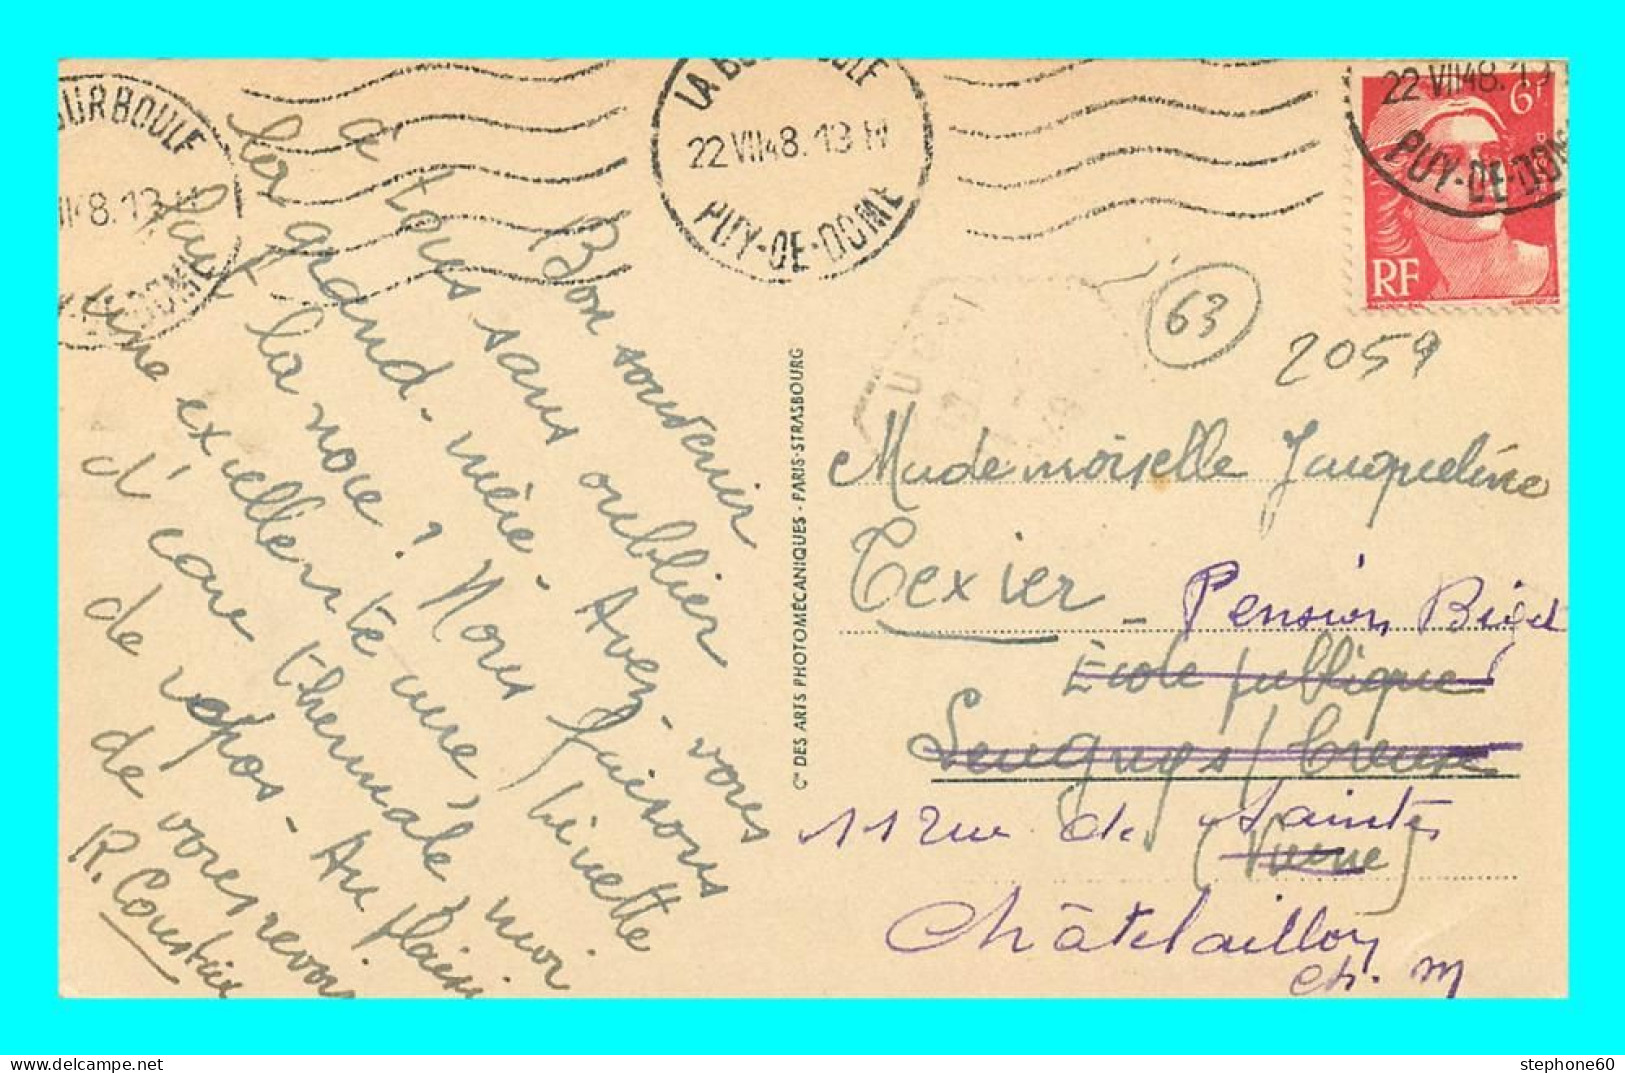 LA BOURBOULE
22 VII 48. 13 H
PUY-DE-DOME
OURBOULE
VII 48. 13 H
DE-DOME
22 VII 48. 13
PUY-DE-DOME
6F
RF
63
2059
Bon souvenir
à tous sans oublier
la grand-mère - Avez-vous
la noie? Nous faisons
une excellente cure, binette
d'eau thermale, moi
de repos - Au plaisir
de vous revoir
R. Coustaix
Cie DES ARTS PHOTOMÉCANIQUES - PARIS-STRASBOURG
Mademoiselle Jacqueline
Texier - Pension
École publique
11 rue de Saintes
(Vienne)
Châtelaillon
Ch. M
stephone60